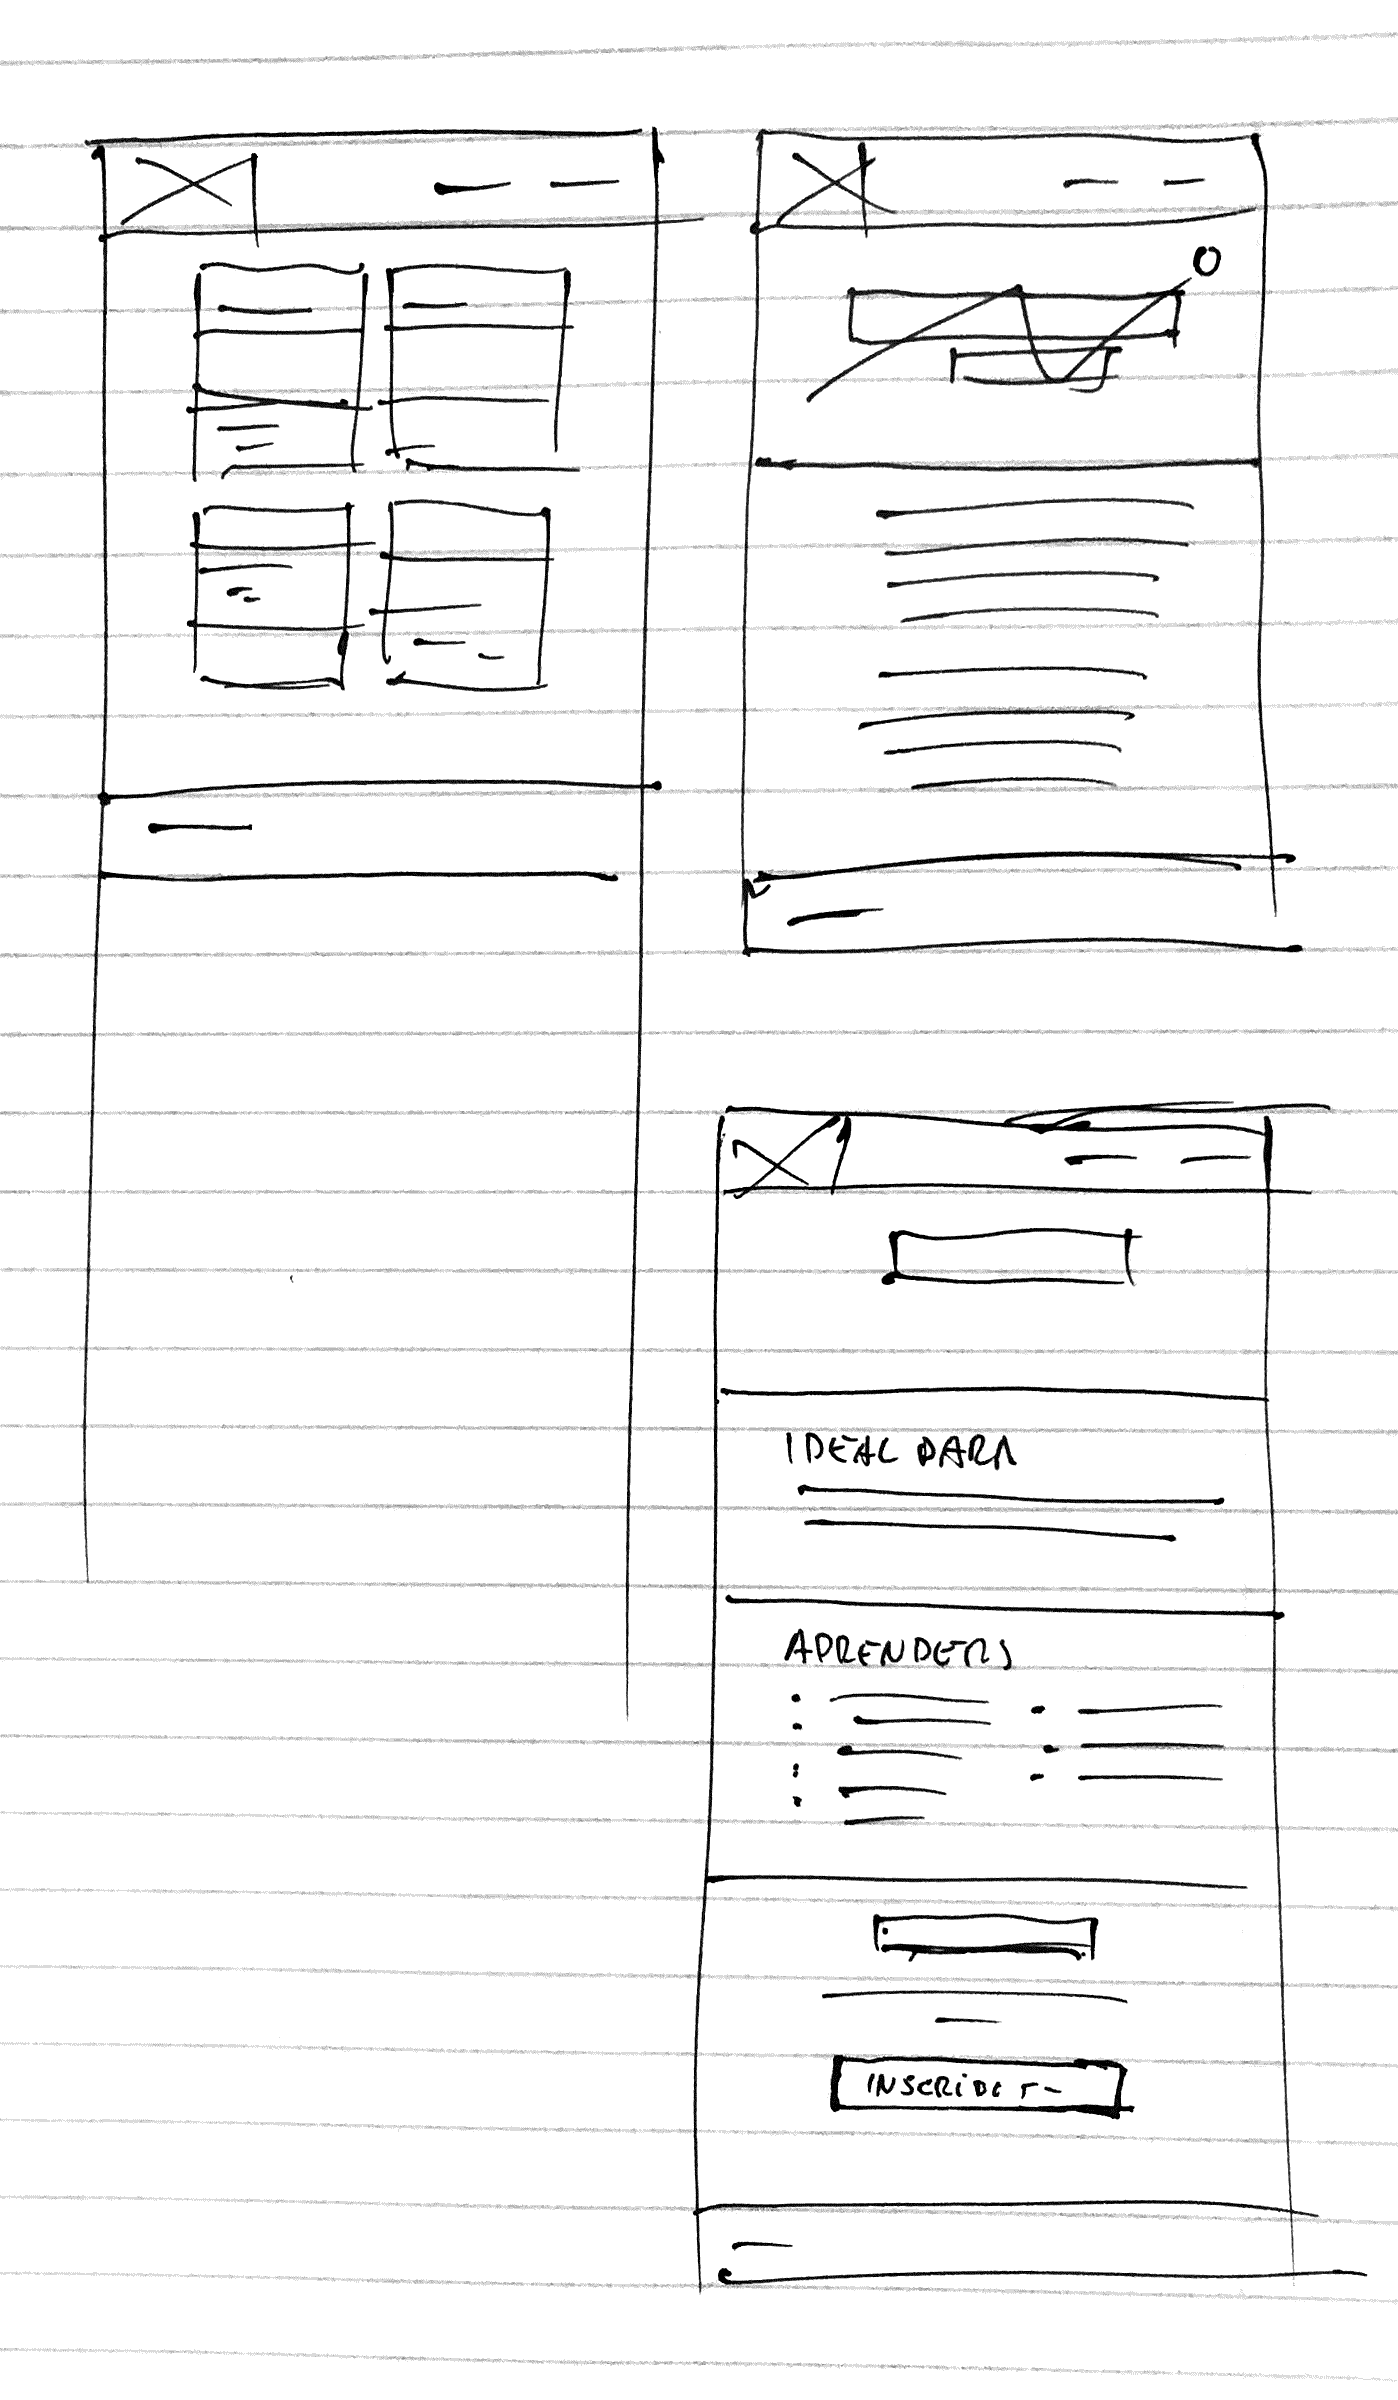 IDEAL PARA
APRENDERS
INSCRIBETE